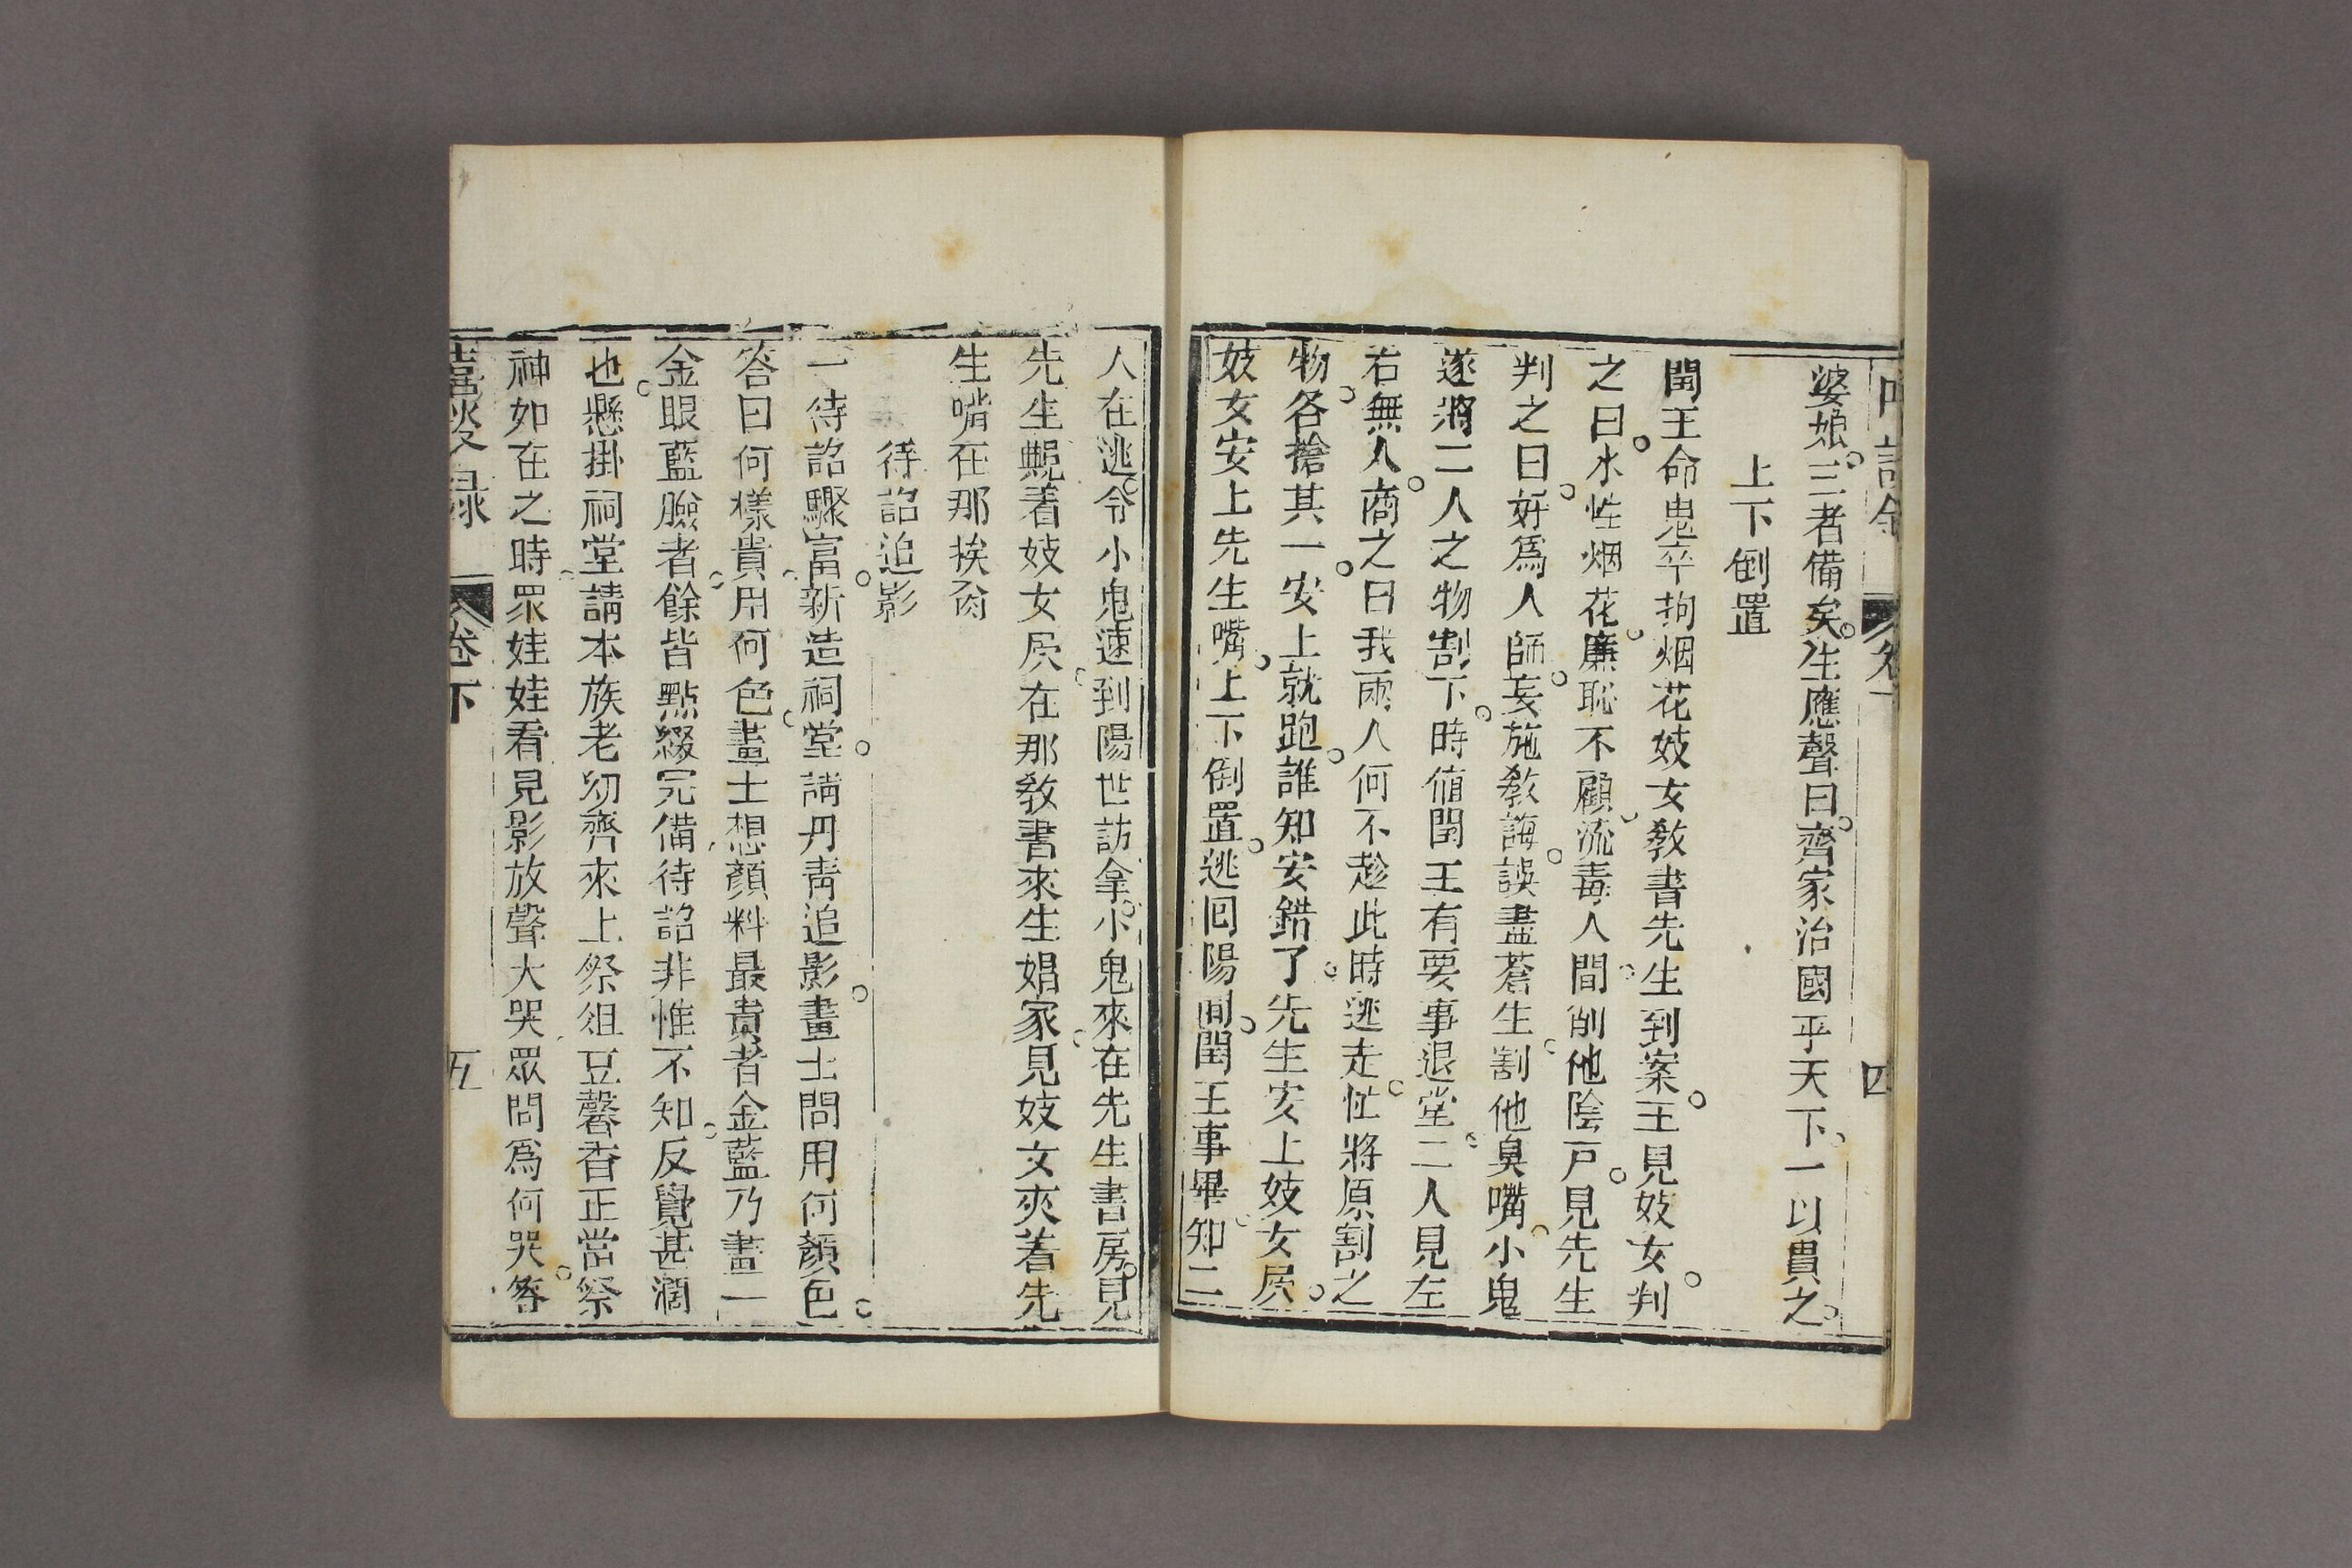 婆娘。三者備矣。生應聲曰。齊家治國平天下。一以貫之。
上下倒置
閻王命鬼卒拘烟花妓女敎書先生到案。王見妓女。判
之曰。水性烟花。廉恥不顧。流毒人間。削他陰戸。見先生
判之曰。好爲人師。妄施敎誨。誤盡蒼生。割他臭嘴。小鬼
遂將二人之物割下。時値閻王有要事退堂。二人見左
右無人。商之曰我兩人何不趁此時逃走。忙將原割之
物。各搶其一。安上就跑。誰知安錯了。先生安上妓女㞘。
妓女安上先生嘴。上下倒置。逃回陽間。閻王事畢。知二
人在逃。令小鬼速到陽世訪拿。小鬼來在先生書房。見
先生䚇着妓女㞘。在那敎書。來生娼家。見妓女夾着先
生嘴在那挨㒲
待詔追影
一待詔驟富。新造祠堂。請丹靑追影。畫士問用何顏色。
答曰何樣貴。用何色。畫士想顏料最貴者金藍。乃畫一
金眼藍臉者。餘皆點綴完備。待詔非惟不知。反覺甚濶
也。懸掛祠堂。請本族老幼齊來上祭。俎豆馨香。正當祭
神如在之時。眾娃娃看見影。放聲大哭。眾問爲何哭。答
卷下
五
四